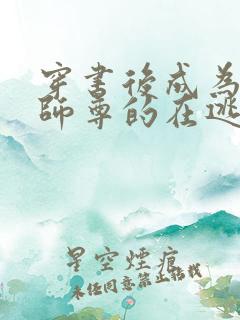 穿書後成為
師尊的在逃
星空煙痕
未经同意禁止转载